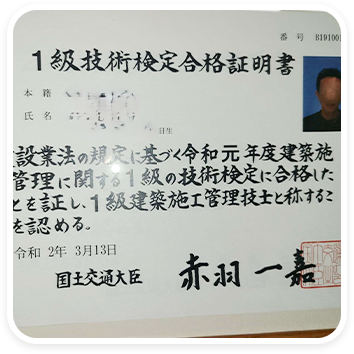 番号 B191001
1級技術検定合格証明書
本籍
氏名
日生
設業法の規定に基づく令和元年度建築施
管理に関する1級の技術検定に合格した
とを証し、1級建築施工管理技士と称するこ
を認める。
令和 2年 3月13日
国土交通大臣 赤羽 一嘉